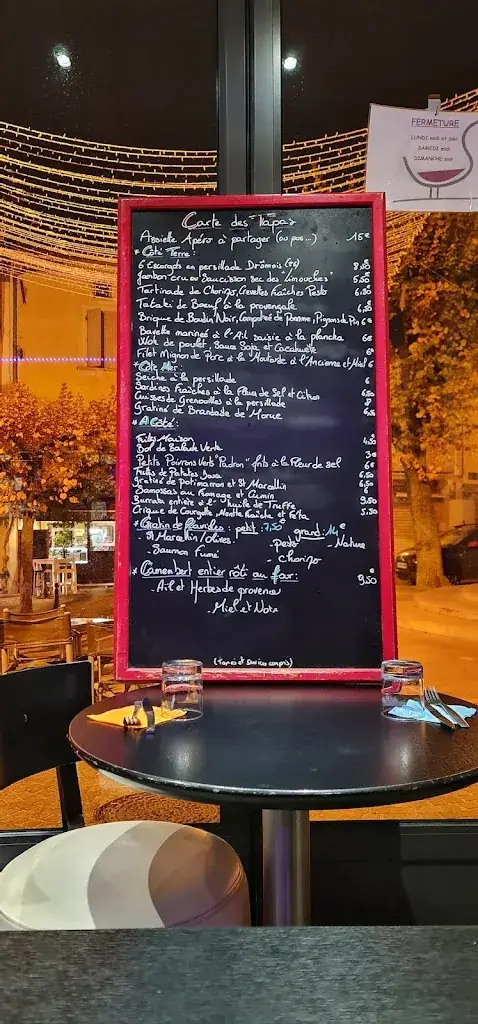 FERMETURE
LUNDI midi et soir
SAMEDI midi
DIMANCHE soir
Carte des Tapas
Assiette Apéro à partager (ou pas...) 15€
* Côté Terre:
6 Escargots en persillade Drômois
Jambon cru ou Saucisson sec des "Limouches"
Tartinade de Chorizo, Crevettes Fraîches Pesto
Tataki de Boeuf à la provençale
Brique de Boudin Noir, Compotée de Pomme, Pignons de Pin 6€
Bavette marinée à l'Ail saisie à la plancha 6€
Wok de poulet, Sauce Soja et Cacahuète 6€
Filet Mignon de Porc à la Moutarde à l'Ancienne et Miel 6
* Côté Mer:
Seiche à la persillade 6
Sardines Fraîches à la Fleur de Sel et Citron 6,50
Cuisses de Grenouilles à la persillade 8
Gratiné de Brandade de Morue 6,50
* A Côté:
Frites Maison 4,50
Bol de Salade Verte 3€
Petits Poivrons Verts "Padron" frits à la Fleur de Sel 6€
Frites de Patates Douce
Gratiné de potimarron et St Marcellin 6,50
Samossas au Fromage et Cumin 6
Burrata entière à l'huile de Truffe 9,50
Crique de Courgette, Menthe Fraîche et Feta 5,50
* Gratin de Ravioles: petit: 7,50€ grand: 14€
- St Marcellin/olives. - Pesto - Nature
- Saumon Fumé - Chorizo
* Camembert entier rôti au four: 9,50
- Ail et Herbes de provence
- Miel et Noix
(Taxes et Service compris)